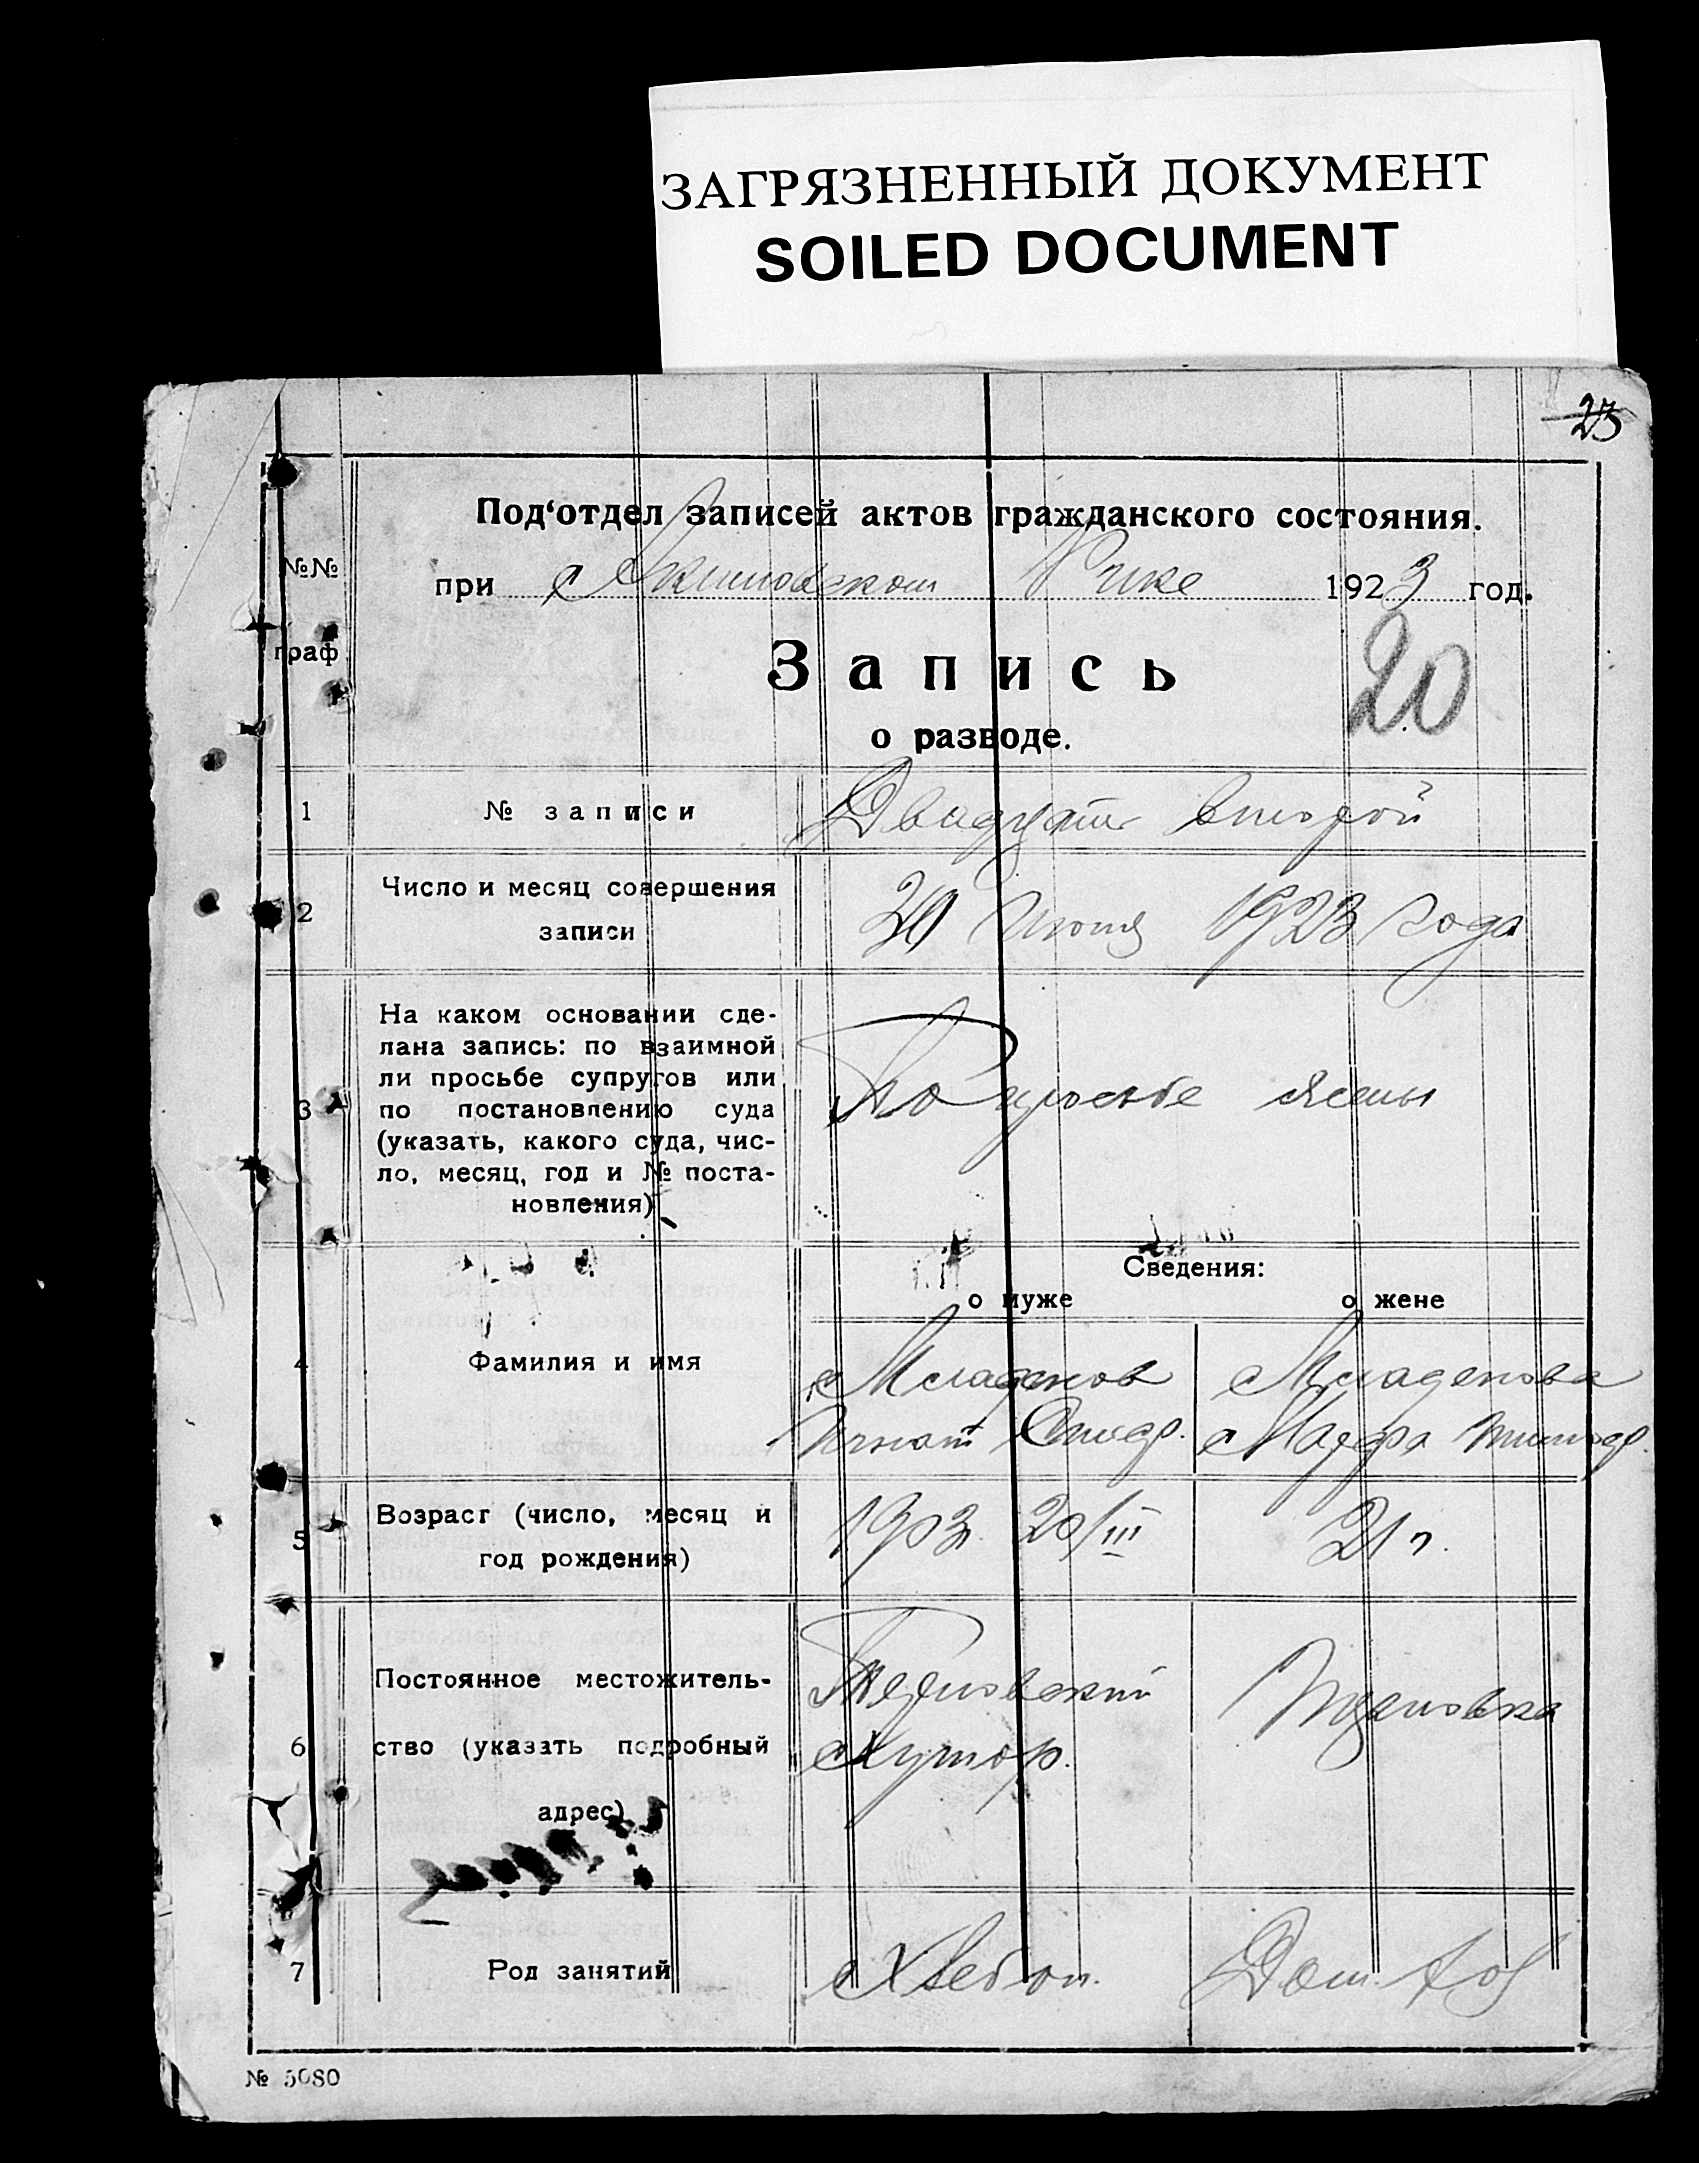 ЗАГРЯЗНЕННЫЙ ДОКУМЕНТ
SOILED DOCUMENT
23
Под‘отдел записей актов гражданского состояния.
при Акимовском Рике 1923 год.
№№ граф
20
Запись
о разводе.
1 № записи Двадцать второй
2 Число и месяц совершения
записи
20 1923 года
3 На каком основании сде-
лана запись: по взаимной
ли просьбе супругов или
по постановлению суда
(указать, какого суда, чис-
ло, месяц, год и № поста-
новления)
По просьбе жены
Сведения:
о муже о жене
4 Фамилия и имя
Младенов Младенова
Игнат
5 Возраст (число, месяц и
год рождения)
1903 20/III 21 г.
6 Постоянное местожитель-
ство (указать подробный
адрес)
Хутор.
7 Род занятий Хлебоп. Дом. хоз
№ 5080